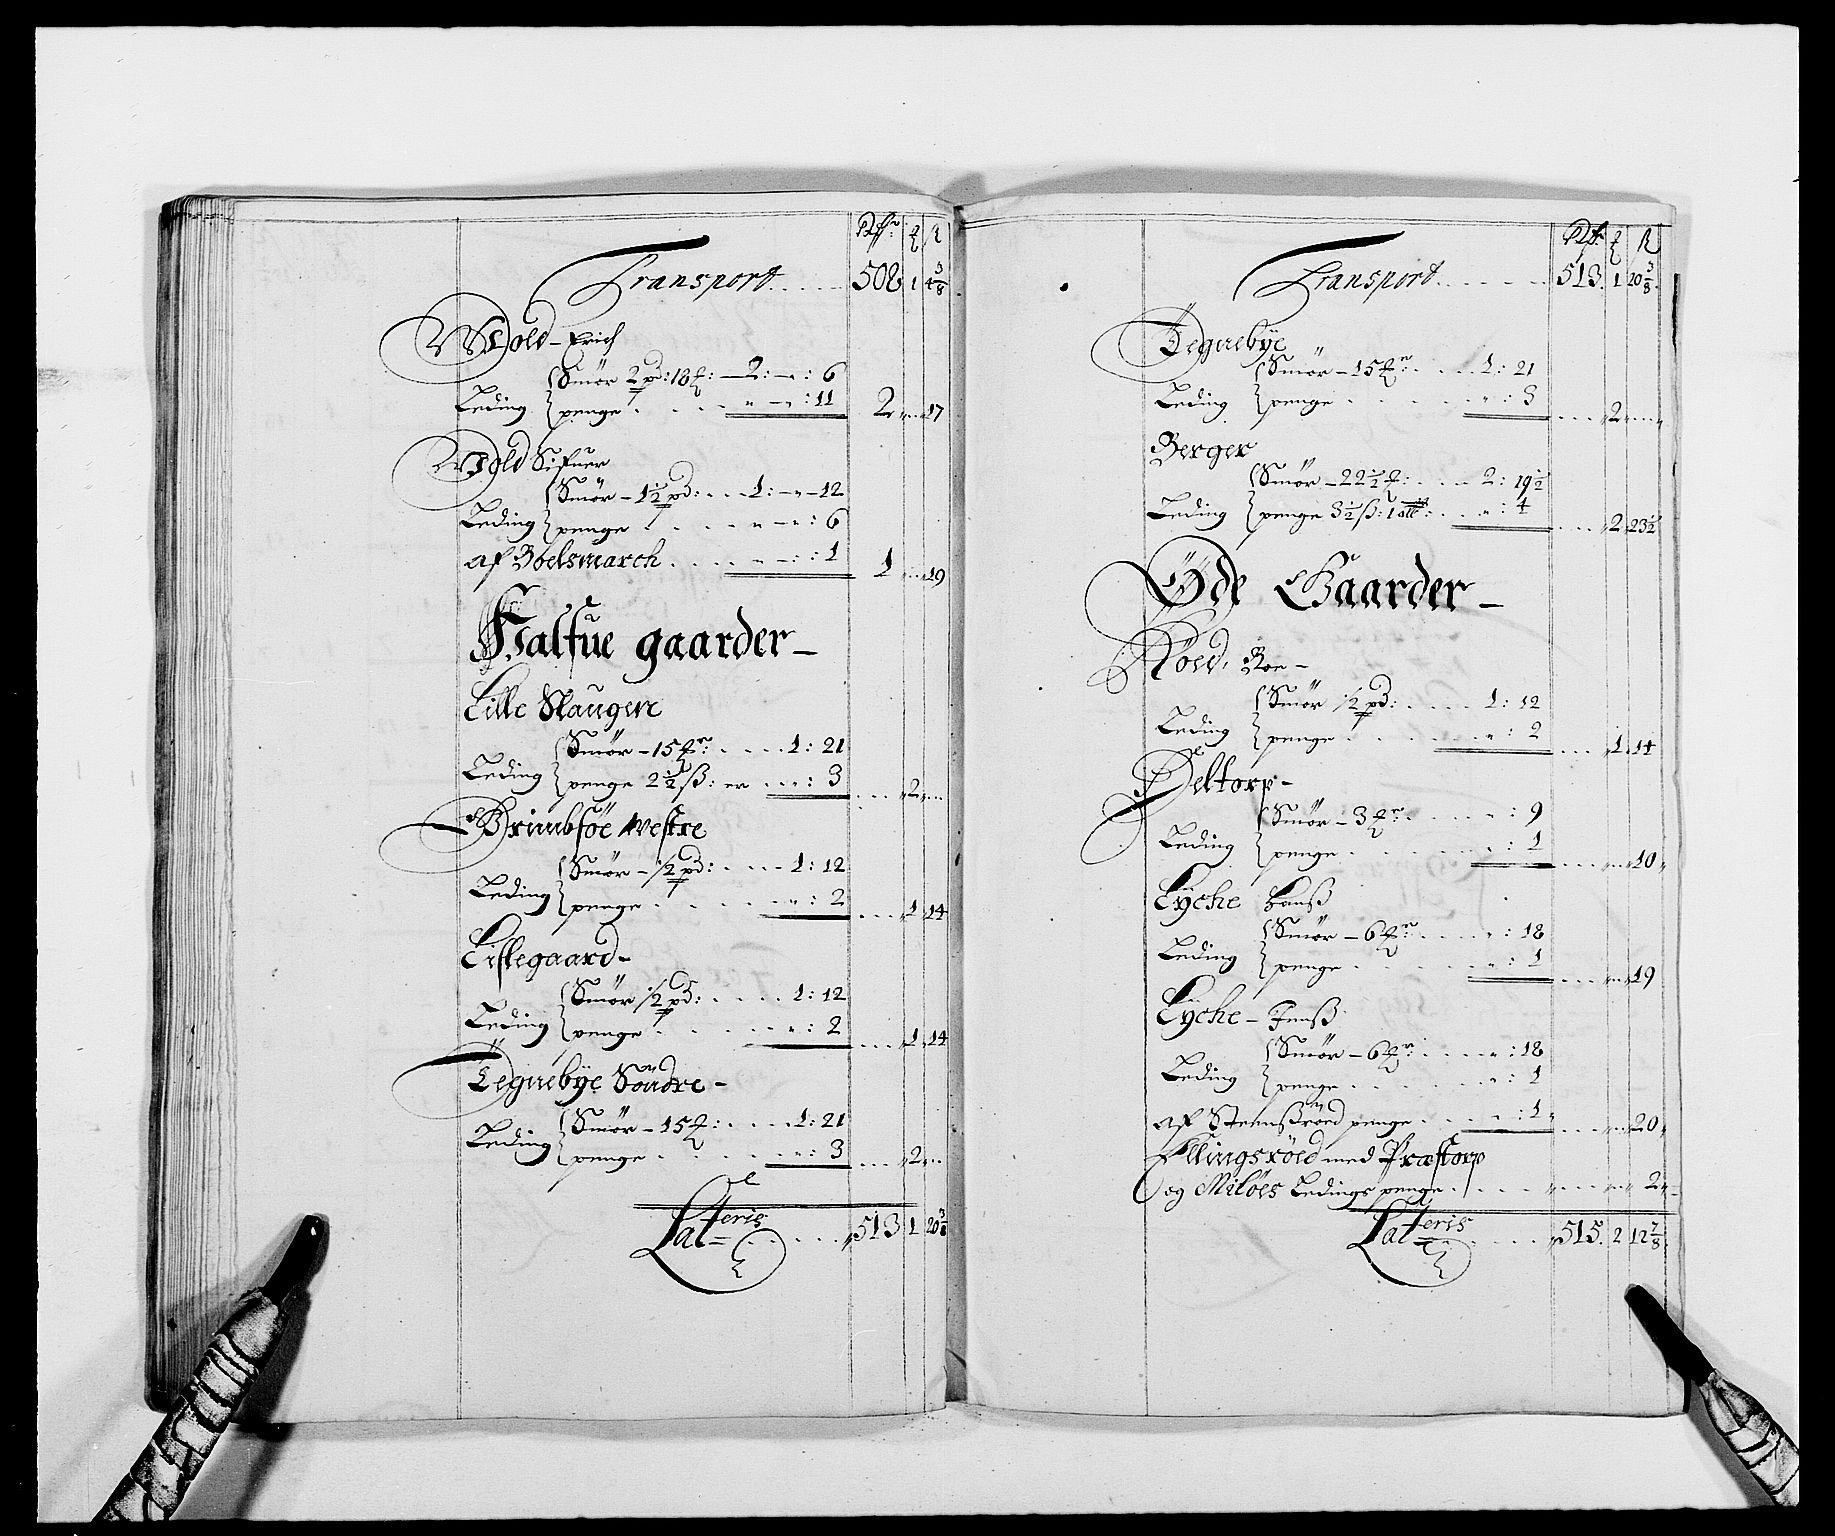 Transport..... 508 1 4 3/8
Wold - Erich
Smör 2 pd: 18 ℔: — 2: — „ : 6
Leding penge . . . . „ — „ : 11 2 „ 17
Wold Sifuer
Smör - 1½ pd: . . . 1: - „ - 12
Leding penge . . . . „ — „ : 6
af Boelsmarch . . . . „ — : 1 1 „ 19
Halfue gaarder —
Lille Slaugere
Smör - 15 ℔: . . . . 1: 21
Leding penge 2½ ß: er . . . „ : 3 .... „ 2 „
Grimbsöe westre
Smör - ½ pd: . . . . 1: 12
Leding penge . . . . . „ : 2 .... „ 1 „ 14
Lillegaard -
Smör ½ pd: . . . . 1: 12
Leding penge . . . . . „ : 2 .... „ 1 „ 14
Tegnebÿe Söndre -
Smör - 15 ℔: . . . . 1: 21
Leding penge . . . . . „ : 3 .... „ 2 „
Lateris ..... 513 1 20 3/8
Transport...... 513. 1 20 3/8
Tegnebÿe
Smör - 15 ℔: . . . . 1: 21
Leding penge . . . . . . „ : 3 .... „ 2 „
Berger
Smör - 22½ ℔: . . . 2: 19½
Leding penge 3½ ß: 1 alb: . . „ : 4 .... 2 23½
Öde Gaarder —
Röed, Roe -
Smör ½ pd: . . . . 1: 12
Leding penge . . . . . „ : 2 .... „ 1 „ 14
Deltorp -
Smör - 3 ℔: . . . . „ : 9
Leding penge . . . . . . „ : 1 .... „ 10 „
Lÿche Hanß
Smör - 6 ℔: . . . . „ : 18
Leding penge . . . . . . „ : 1 .... „ 19
Lÿche - Jenß
Smör - 6 ℔: . . . . „ : 18
Leding penge . . . . . . „ : 1
af Steenßröed penge . . . „ : 1 „ .... „ 20 „
Ellingsröed med Præstorp
og Milöes Ledings penge . . . . „ .... „ 2 „
Lateris ..... 515. 2 12 7/8